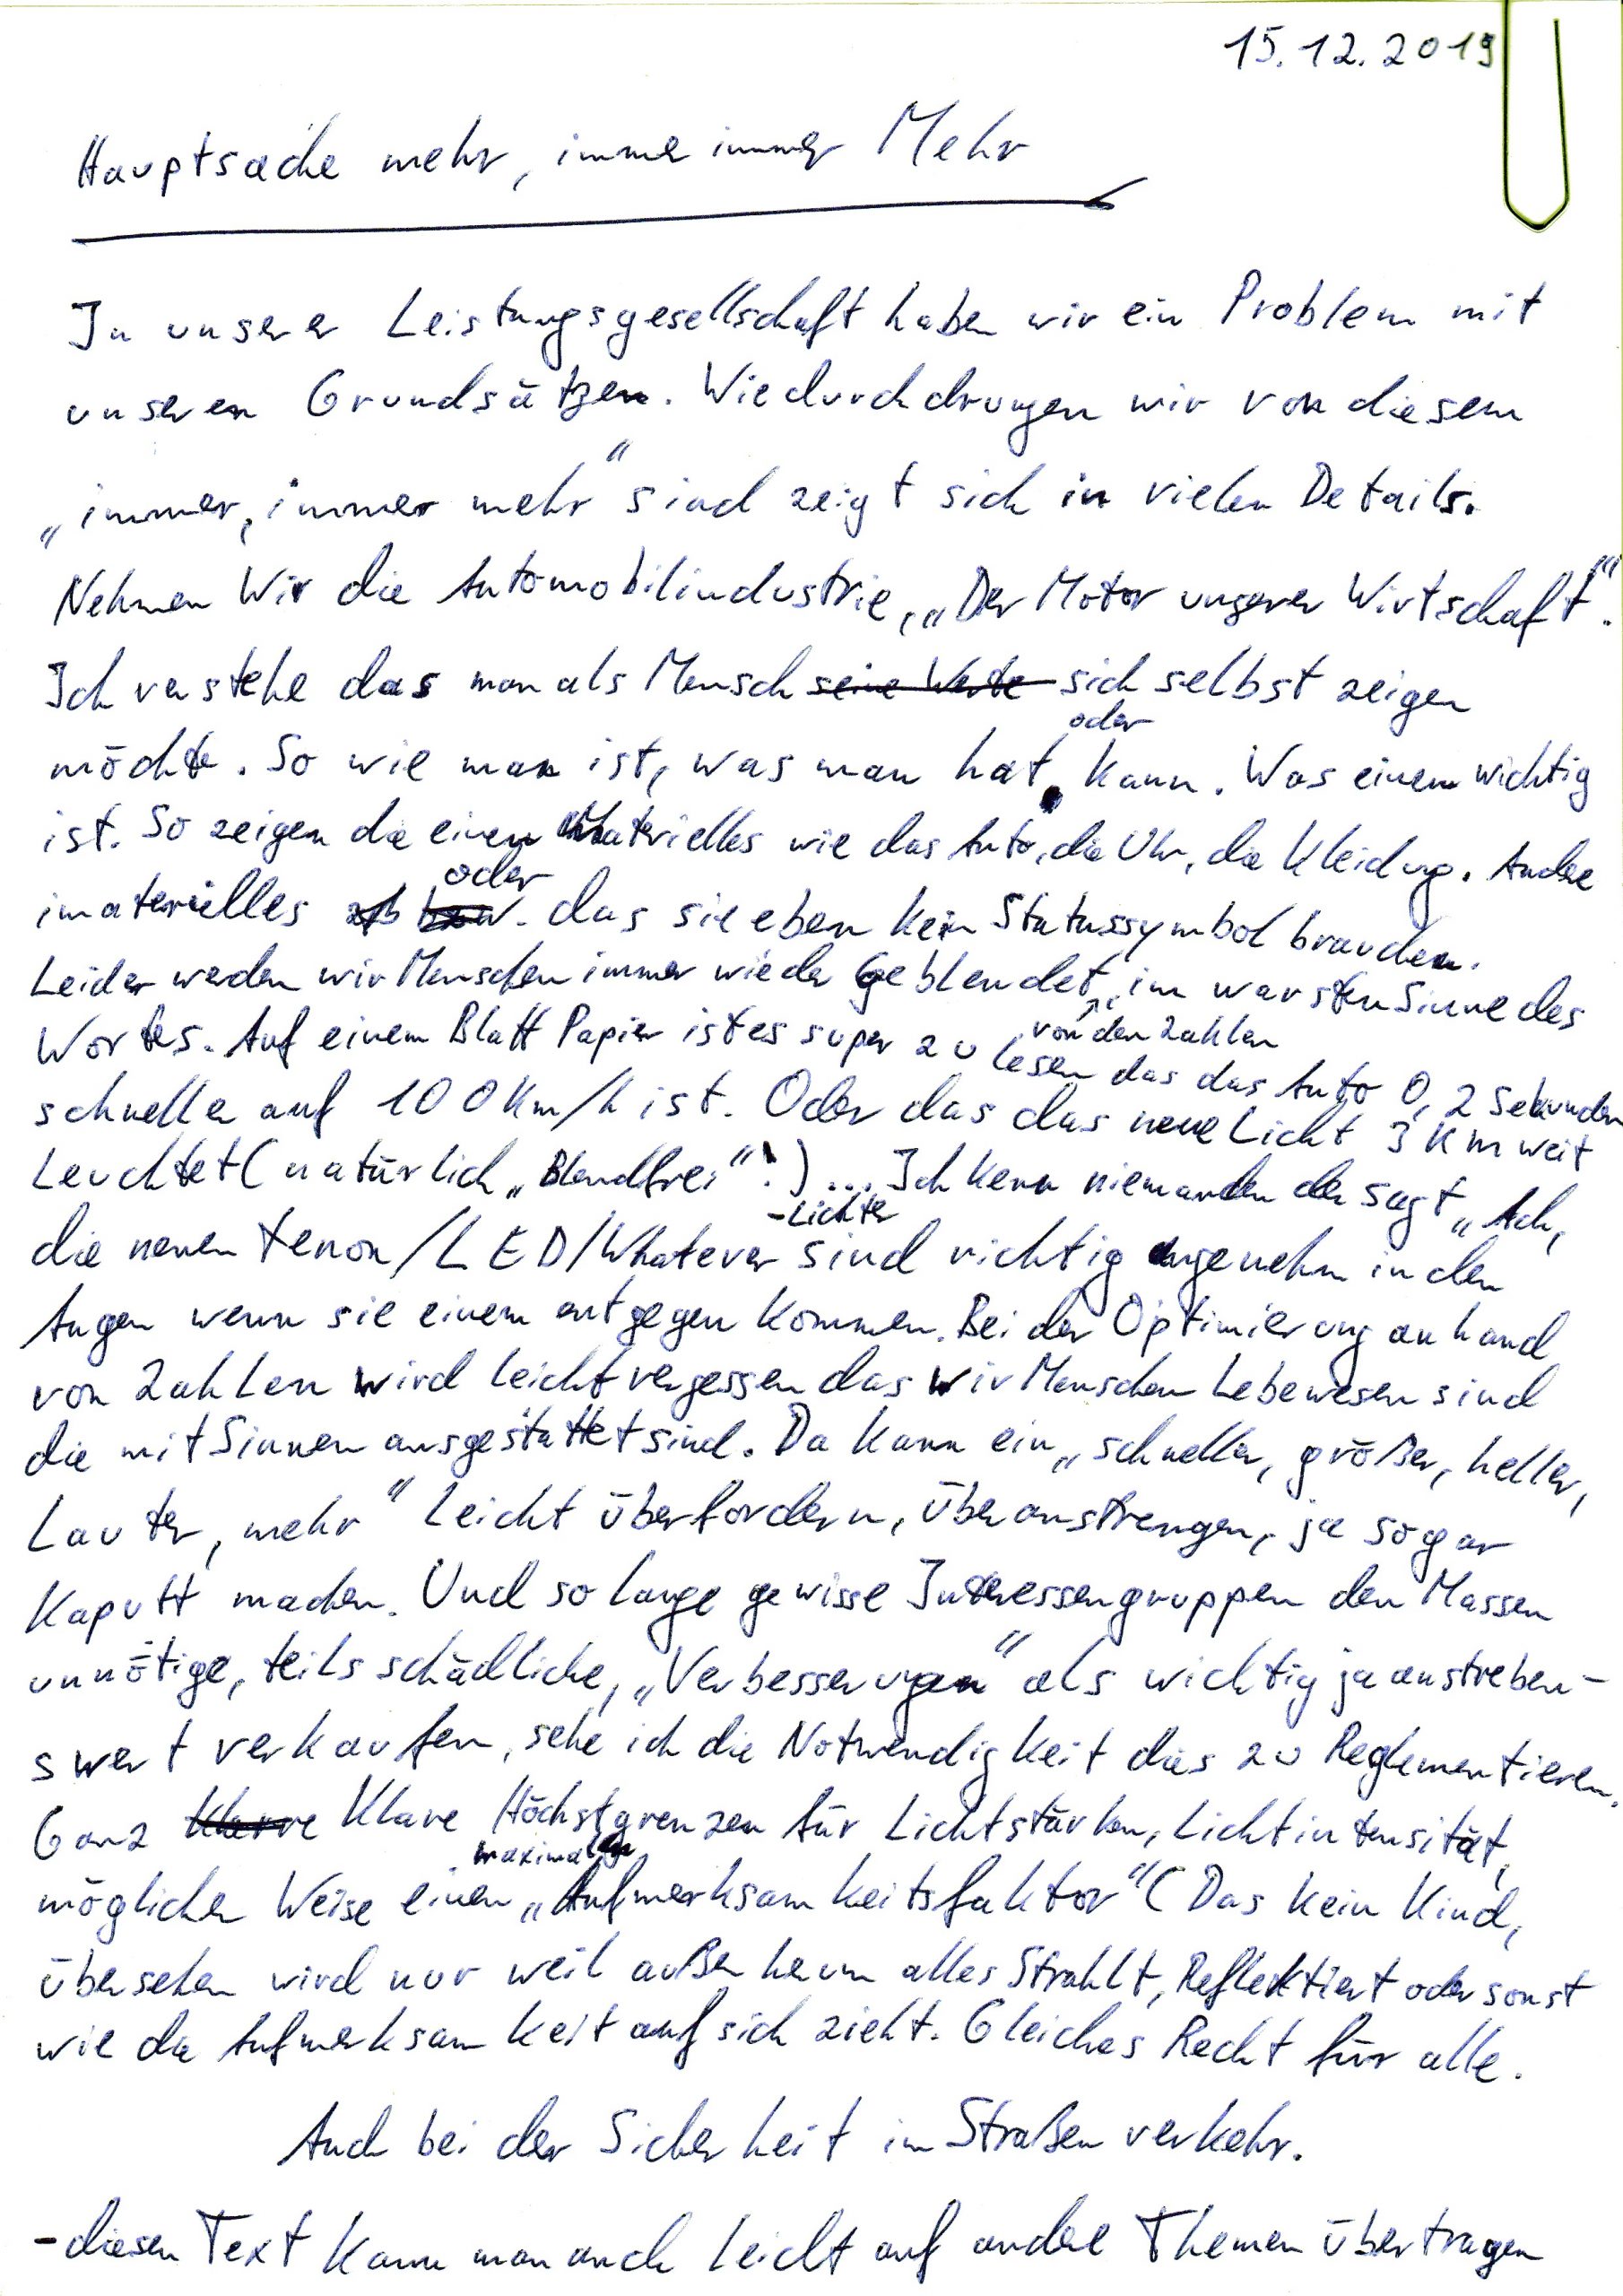 15.12.2019
Hauptsache mehr, immer immer Mehr
In unserer Leistungsgesellschaft haben wir ein Problem mit
unseren Grundsätzen. Wie durchdrungen wir von diesem
„immer, immer mehr“ sind zeigt sich in vielen Details.
Nehmen Wir die Automobilindustrie, „Der Motor unserer Wirtschaft“.
Ich verstehe das man als Mensch seine Werte sich selbst zeigen
möchte. So wie man ist, was man hat oder kann. Was einem wichtig
ist. So zeigen die einen Materielles wie das Auto, die Uhr, die Kleidung. Andere
imaterielles bzw. oder das sie eben kein Statussymbol brauchen.
Leider werden wir Menschen immer wieder Geblendet, von den Zahlen im warsten Sinne des
Wortes. Auf einem Blatt Papier ist es super zu lesen das das Auto 0,2 Sekunden
schneller auf 100 Km/h ist. Oder das das neue Licht 3 Km weit
Leuchtet (natürlich „Blendfrei“!) ... Ich kenn niemanden der sagt „Ach,
die neuen Xenon/LED/Whatever -Lichter sind richtig angenehm in den
Augen wenn sie einem entgegen kommen. Bei der Optimierung anhand
von Zahlen wird leicht vergessen das wir Menschen Lebewesen sind
die mit Sinnen ausgestattet sind. Da kann ein „schneller, größer, heller,
Lauter, mehr“ Leicht überfordern, überanstrengen, ja sogar
Kaputt machen. Und so lange gewisse Interessengruppen den Massen
unnötige, teils schädliche, „Verbesserungen“ als wichtig ja anstreben-
swert verkaufen, sehe ich die Notwendigkeit dies zu Reglementieren.
Ganz Klarre Klare Höchstgrenzen für Lichtstärken, Lichtintensität,
möglicher Weise einen maximalen „Aufmerksamkeitsfaktor“ (Das kein Kind,
übersehen wird nur weil außen herum alles Strahlt, Reflektiert oder sonst
wie die Aufmerksamkeit auf sich zieht. Gleiches Recht für alle.
Auch bei der Sicherheit im Straßenverkehr.
-diesen Text kann man auch leicht auf andere Themen übertragen